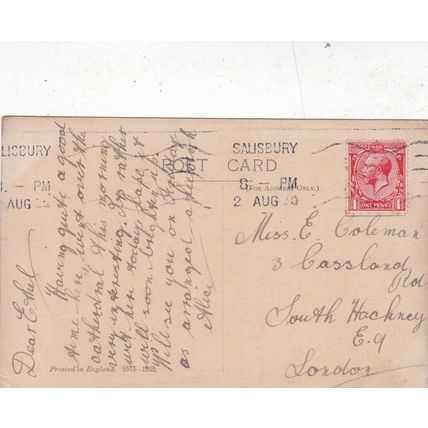 SALISBURY
8 - PM
2 AUG 20
POST CARD
(FOR ADDRESS ONLY.)
ONE PENNY
Dear Ethel
Having quite a good
time here, went over the
cathedral this morning
very interesting. Its rather
wet here today, hope it
will soon brighten up
Will see you on
as arranged
Alice
Miss. E. Coleman
3 Cassland
Rd
South Hackney
E.9
London
Printed in England.